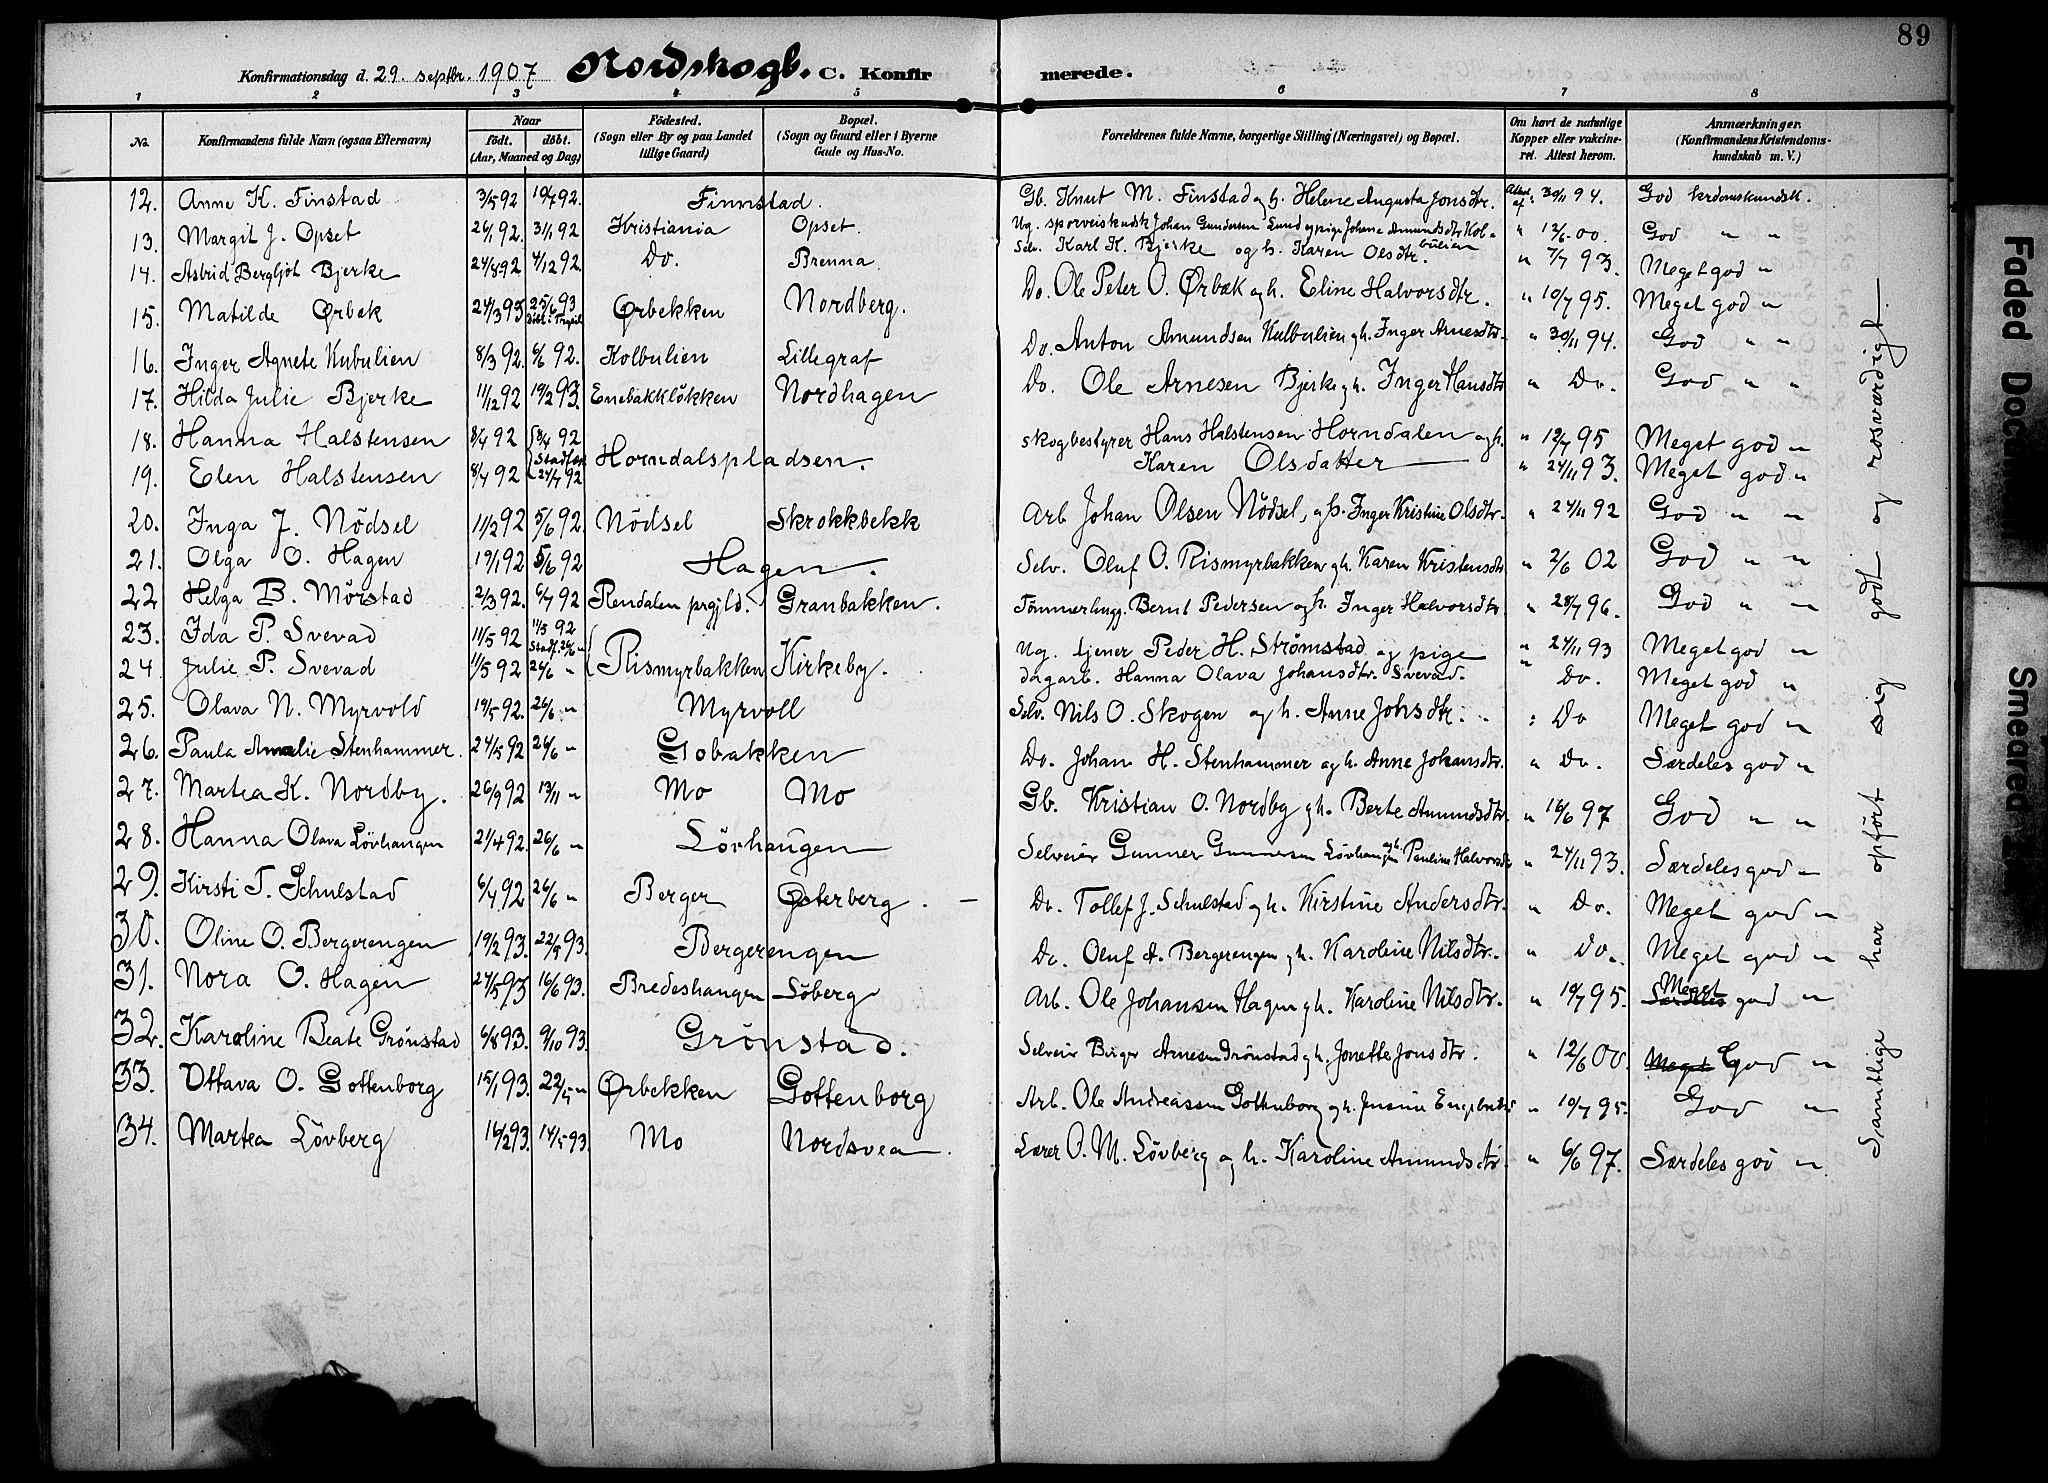 89
Konfirmationsdag d. 29. septbr. 1907 Nordskogb. C. Konfirmerede.
1 2 3 4 5 6 7 8
No. Konfirmandens fulde Navn (ogsaa Efternavn) Naar født. døbt. (Aar, Maaned og Dag) Fødested. (Sogn eller By og paa Landet tillige Gaard) Bopæl. (Sogn og Gaard eller i Byerne Gade og Hus-No.) Forældrenes fulde Navne, borgerlige Stilling (Næringsvei) og Bopæl. Om havt de naturlige Kopper eller vakcineret. Attest herom. Anmærkninger. (Konfirmandens Kristendomskundskab m. V.)
12. Anne K. Finstad 3/5 92 10/7 92. Finnstad. Gb. Knut M. Finstad og h. Helene Augusta Jonsdtr. 30/11 94. God krdomskundsk.
13. Margit J. Opset 26/1 92. 31/1 92 Kristiania Opset. Ug. sporveiskudsk Johan Gundersen Lund og pige Johane Amundsdtr Kolbulien " 12/6 00. God " "
14. Astrid Bergljot Bjerke 24/8 92 4/12 92. Do. Brenna. Selv. Karl K. Bjerke og h. Karen Olsdtr. " 7/7 93. Meget god "
15. Matilde Ørbek 24/3 93 25/6 93 døbt i Trysil Ørbekken Nordberg. Do. Ole Peter O. Ørbæk og h. Eline Halvorsdtr. " 10/7 95. Meget god "
16. Inger Agnete Kubulien 8/3 92. 6/6 92. Kolbulien Lillegraf Do. Anton Amundsen Kulbulien og h. Inger Arnesdtr. " 30/11 94. God " "
17. Hilda Julie Bjerke 11/12 92 19/2 93. Enebakkløkken Nordhagen Do. Ole Arnesen Bjerke og h. Inger Hansdtr " Do. God " "
18. Hanna Halstensen 8/4 92 8/4 92 Horndalspladsen. skogbestyrer Hans Halstensen Horndalen og h. " 12/7 95 Meget god "
19. Elen Halstensen 8/4 92 Stadfæst 24/7 92 Karen Olsdatter " 24/11 93. Meget god "
20. Inga J. Nödsel 11/2 92 5/6 92. Nödsel Skrokkbekk Arb Johan Olsen Nödsel, og h. Inger Kristine Olsdtr. " 24/11 92 God " "
21. Olga O. Hagen 19/1 92 5/6 92 Hagen. Selv. Oluf O. Rismyrbakken og h. Karen Kristensdtr " 2/6 02 God " "
22 Helga B. Mörstad 2/3 92. 6/7 92 Rendalen prgjld. Granbakken. Tömmerhugg. Bernt Pedersen og h. Inger Halvorsdtr. " 28/7 96. God " "
23. Ida P. Svevad 11/5 92 11/5 92 Stadf. 26/6 " Rismyrbakken Kirkeby. Ug. tjener Peder H. Strømstad og pige " 24/11 93 Meget god "
24. Julie P. Svevad 11/5 92 26/6 " dagarb. Hanna Olava Johansdtr. Svevad. " Do. Meget god "
25. Olava N. Myrvold 19/5 92. 26/6 " Myrvoll Selv. Nils O. Skogen og h. Anne Johsdtr. " Do Meget god "
26. Paula Amelie Stenhammer. 24/5 92 26/6 " Gobakken Do. Johan H. Stenhammer og h. Anne Johansdtr. " Do. Særdeles god "
27. Martea K. Nordby. 26/9 92 13/11 " Mo Mo Gb. Kristian O. Nordby og h. Berte Amundsdtr. " 16/6 97 God " "
28. Hanna Olava Lövhaugen 21/4 92. 26/6 " Lövhaugen Selveier Gunner Gunnersen Lövhaugen og h. Pauline Halvorsdtr " 24/11 93. Særdeles god "
29. Kirsti T. Schulstad 6/4 92 26/6 " Berger Østerberg. Do. Tollef J. Schulstad og h. Kirstine Andersdtr. " Do. Meget god "
30. Oline O. Bergerengen 19/2 93. 22/5 93. Bergerengen Do. Oluf A. Bergerengen og h. Karoline Nilsdtr. " Do. Meget god "
31. Nora O. Hagen 27/5 93 16/6 93. Bredeshaugen Söberg Arb. Ole Johansen Hagen og h. Karoline Nilsdtr. " 10/7 95. Særdeles Meget god "
32. Karoline Beate Grönstad 6/8 93. 9/10 93. Grönstad. Selveier Birger Arnesen Grönstad og h. Jonette Jonsdtr. " 12/6 00. Meget God "
33. Ottava O. Gottenborg 15/1 93. 22/5 " Ørbekken Gottenborg Arb. Ole Andreassen Gottenborg og h. Jensine Engebretsd " 10/7 95. God "
34. Martea Lövberg 16/2 93. 14/5 93. Mo Nordsvea. Lærer O. M. Lövberg og h. Karoline Amundsdtr. " 6/6 97. Særdeles god "
Samtlige har opført sig godt og rosværdigt.
Faded Document
Smeared